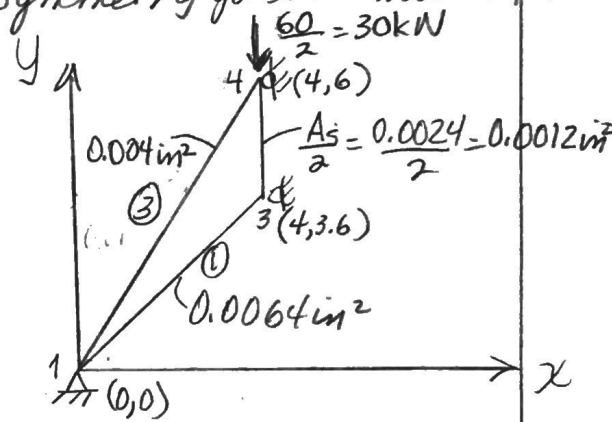 60/2 = 30kN
y
4 (4,6)
0.004in²
As/2 = 0.0024/2 = 0.0012in²
③
3 (4,3.6)
①
0.0064in²
1
(0,0)
x